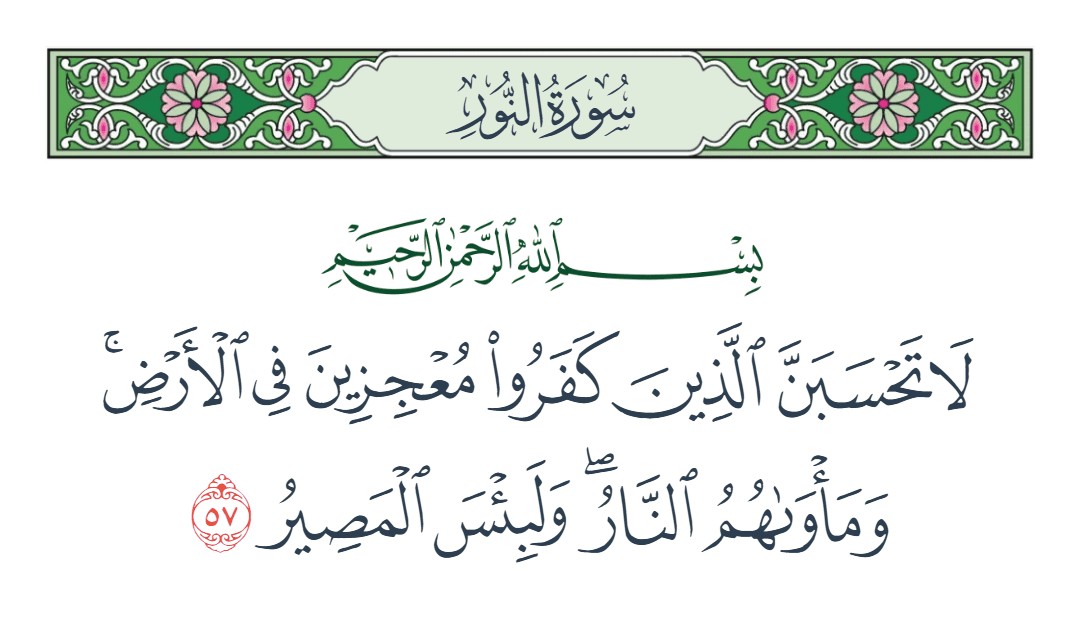 سُورَةُ النُّورِ
بِسْمِ ٱللَّهِ ٱلرَّحْمَٰنِ ٱلرَّحِيمِ
لَا تَحْسَبَنَّ ٱلَّذِينَ كَفَرُوا۟ مُعْجِزِينَ فِى ٱلْأَرْضِ ۚ
وَمَأْوَىٰهُمُ ٱلنَّارُ ۖ وَلَبِئْسَ ٱلْمَصِيرُ ٥٧